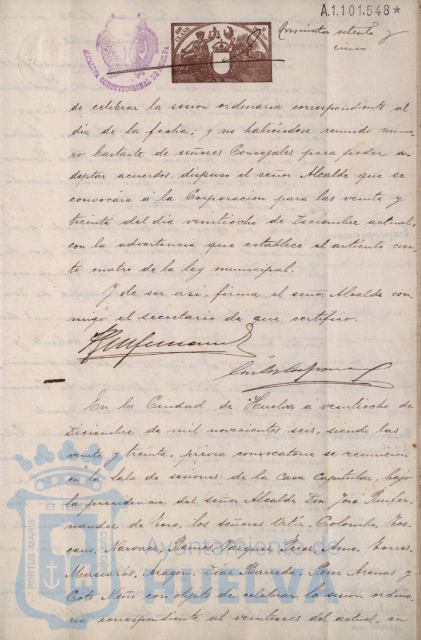 A.1.101.548*
ALCALDIA CONSTITUCIONAL DE HUELVA
de celebrar la sesion ordinaria correspondiente al
dia de la fecha; y no habiéndose reunido nume-
ro bastante de señores Concejales para poder a-
doptar acuerdos, dispuso el señor Alcalde que se
convocára á la Corporacion para las veinte y
treinta del dia veintiocho de Diciembre actual,
con la advertencia que establece el artículo cien-
to cuatro de la ley municipal.
Y de ser asi, firma el señor Alcalde con-
migo el secretario de que certifico.
En la Ciudad de Huelva á veintiocho de
Diciembre de mil novecientos seis, siendo las
veinte y treinta, previa convocatoria se reunieron
en la Sala de sesiones de la Casa Capitular, bajo
la presidencia del señor Alcalde Don José
de Toro, los señores Ortiz, Colombo, Tos-
cano, Narvaez, Ramos, Vazquez, Perez Amo, Torres,
Aragon, Diaz Barreda, Perez Arenas y
Coto con objeto de celebrar la sesion ordina-
ria correspondiente al veintiseis del actual, en
PORTUS MARIS ET TERRE CUSTODIA
Ayuntamiento de
HUELVA